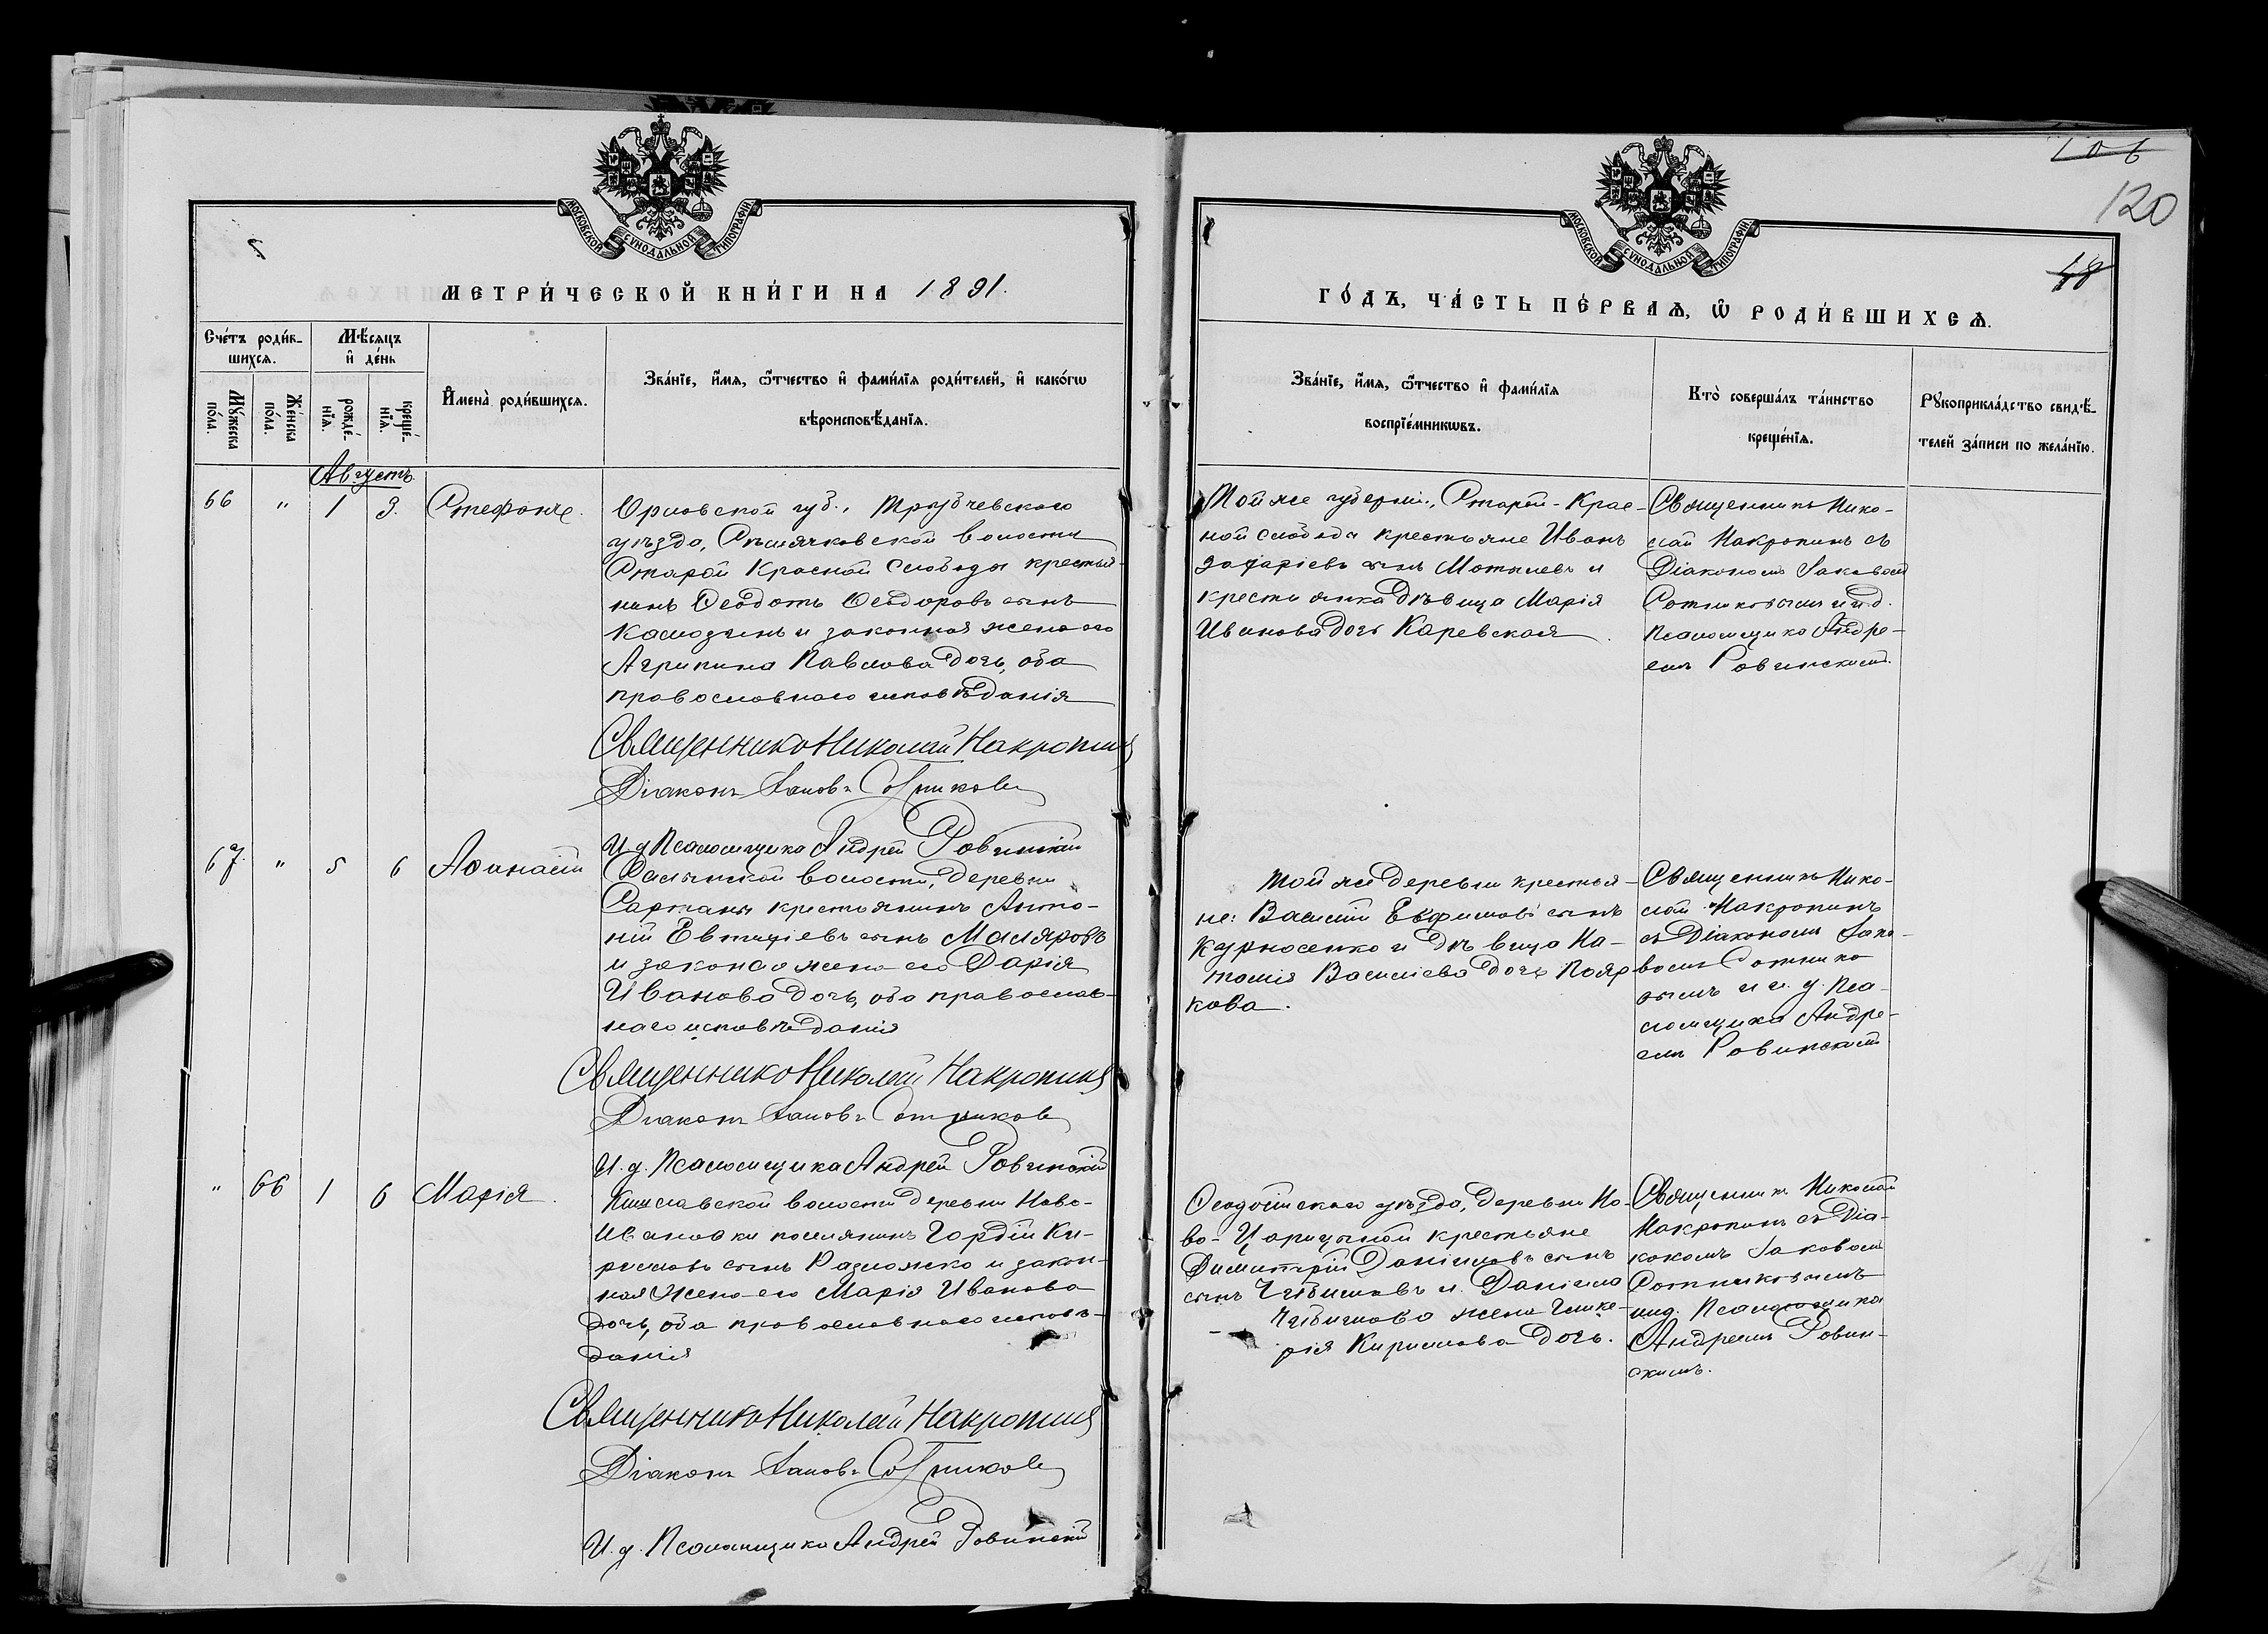 МОСКОВСКОЙ СУНОДАЛЬНОЙ ТИПОГРАФІИ
МЕТРИ́ЧЕСКОЙ КНИ́ГИ НА 1891.
Сче́тъ роди́в-
шихся.
Мѣ́сяцъ
и҆ де́нь
Мꙋ́жеска по́ла.
Же́нска по́ла.
рожде́-
нїя.
креще́-
нїя.
И҆мена̀ роди́вшихся.
Зва́нїе, и҆́мя, ѻ҆́тчество и҆ фами́лїя роди́телей, и҆ како́гѡ
вѣроисповѣ́данїя.
Августъ.
66 " 1 3. Стефанъ.
Орловской губ., Трубчевского
уѣзда, волости
Старой Красной Слободы крестья-
нинъ Ѳеодотъ Ѳеодоровъ сынъ
и законная жена его
Агрипина Павлова дочь, оба
православнаго исповѣданія
Священникъ Николай Накропинъ
Діаконъ Іаковъ Сотниковъ
И д Псаломщика Андрей Ровинскій
67. " 5 6 Аѳанасій
волости, деревни
Сартаны крестьянинъ Анто-
ній Евтихіевъ сынъ Маляровъ
и законая жена его Дарія
Иванова дочь, оба православ-
наго исповѣданія
Священникъ Николай Накропинъ
Діаконъ Іаковъ Сотниковъ
И. д. Псаломщика Андрей Ровинскій
" 66 1 6 Марія.
волости деревни Ново-
Ивановки поселянинъ Гордій Ки-
риловъ сынъ Разложко и закон-
ная жена его Марія Иванова
дочь, оба православнаго исповѣ-
данія
Священникъ Николай Накропинъ
Діаконъ Іаковъ Сотниковъ
И. д. Псаломщика Андрей Ровинскій
106
120
МОСКОВСКОЙ СУНОДАЛЬНОЙ ТИПОГРАФІИ
48
ГО́ДЪ, ЧА́СТЬ ПЕ́РВАЯ, Ѡ҆ РОДИ́ВШИХСЯ.
Зва́нїе, и҆́мя, ѻ҆́тчество и҆ фами́лїя
воспрїе́мникѡвъ.
Кто̀ соверша́лъ та́инство
креще́нїя.
Рꙋкоприкла́дство свидѣ́-
телей за́писи по жела́нїю.
Той же губерніи, Старой-Крас-
ной слободы крестьяне Иванъ
Захаріевъ сынъ Мотылевъ и
крестьянка дѣвица Марія
Иванова дочь Каревская.
Священникъ Нико-
лай Накропинъ съ
Діакономъ Іаковомъ
Сотниковымъ и и.д.
Псаломщика Андре-
емъ Ровинскимъ.
Той же деревни крестья-
не: Василій Евфимовъ сынъ
Курносенко и дѣвица На-
талія Васильева дочь Пояр
кова.
Священникъ Нико-
лай Накропинъ
съ Діакономъ Іако-
вомъ Сотнико
вымъ и и. д. Пса-
ломщика Андре-
емъ Ровинскимъ
Ѳеодосійскаго уѣзда, деревни Но-
во-Царицыной крестьяне
Димитрій Даніиловъ сынъ
сынъ Чабишовъ и Даніила
Чабишова жена Глике-
рія Кирилова дочь.
Священникъ Николай
Накропинъ съ Діа-
кономъ Іаковомъ
Сотниковымъ
и и.д. Псаломщика
Андреемъ Ровин-
скимъ.